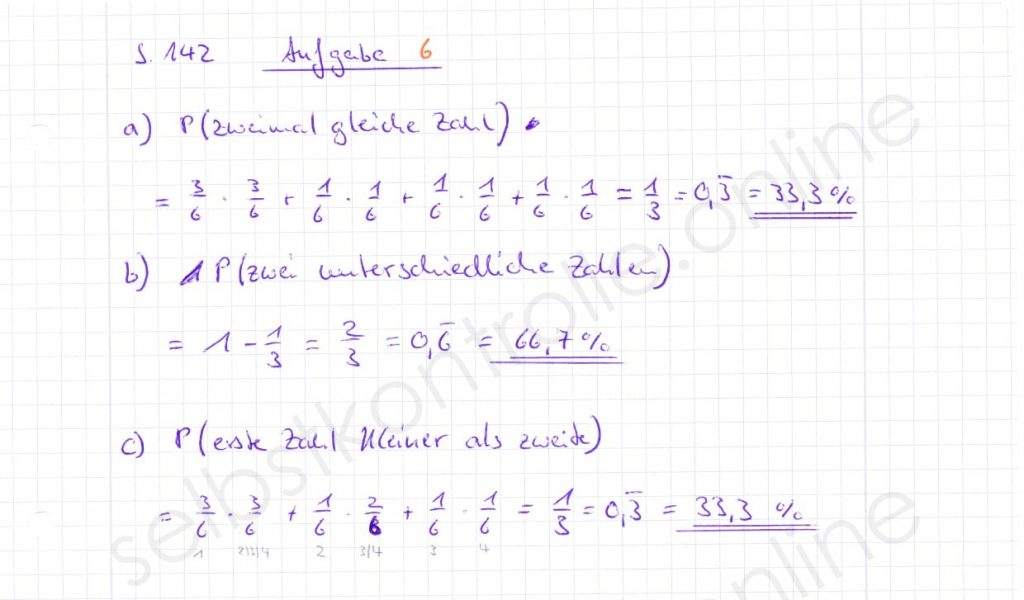 S. 142 Aufgabe 6
a) P(zweimal gleiche Zahl)
= 3/6 · 3/6 + 1/6 · 1/6 + 1/6 · 1/6 + 1/6 · 1/6 = 1/3 = 0,3̅ = 33,3 %
b) P(zwei unterschiedliche Zahlen)
= 1 - 1/3 = 2/3 = 0,6̅ = 66,7 %
c) P(erste Zahl kleiner als zweite)
= 3/6 · 3/6 + 1/6 · 2/6 + 1/6 · 1/6 = 1/3 = 0,3̅ = 33,3 %
1 2/3/4 2 3/4 3 4
selbstkontrolle.online
online